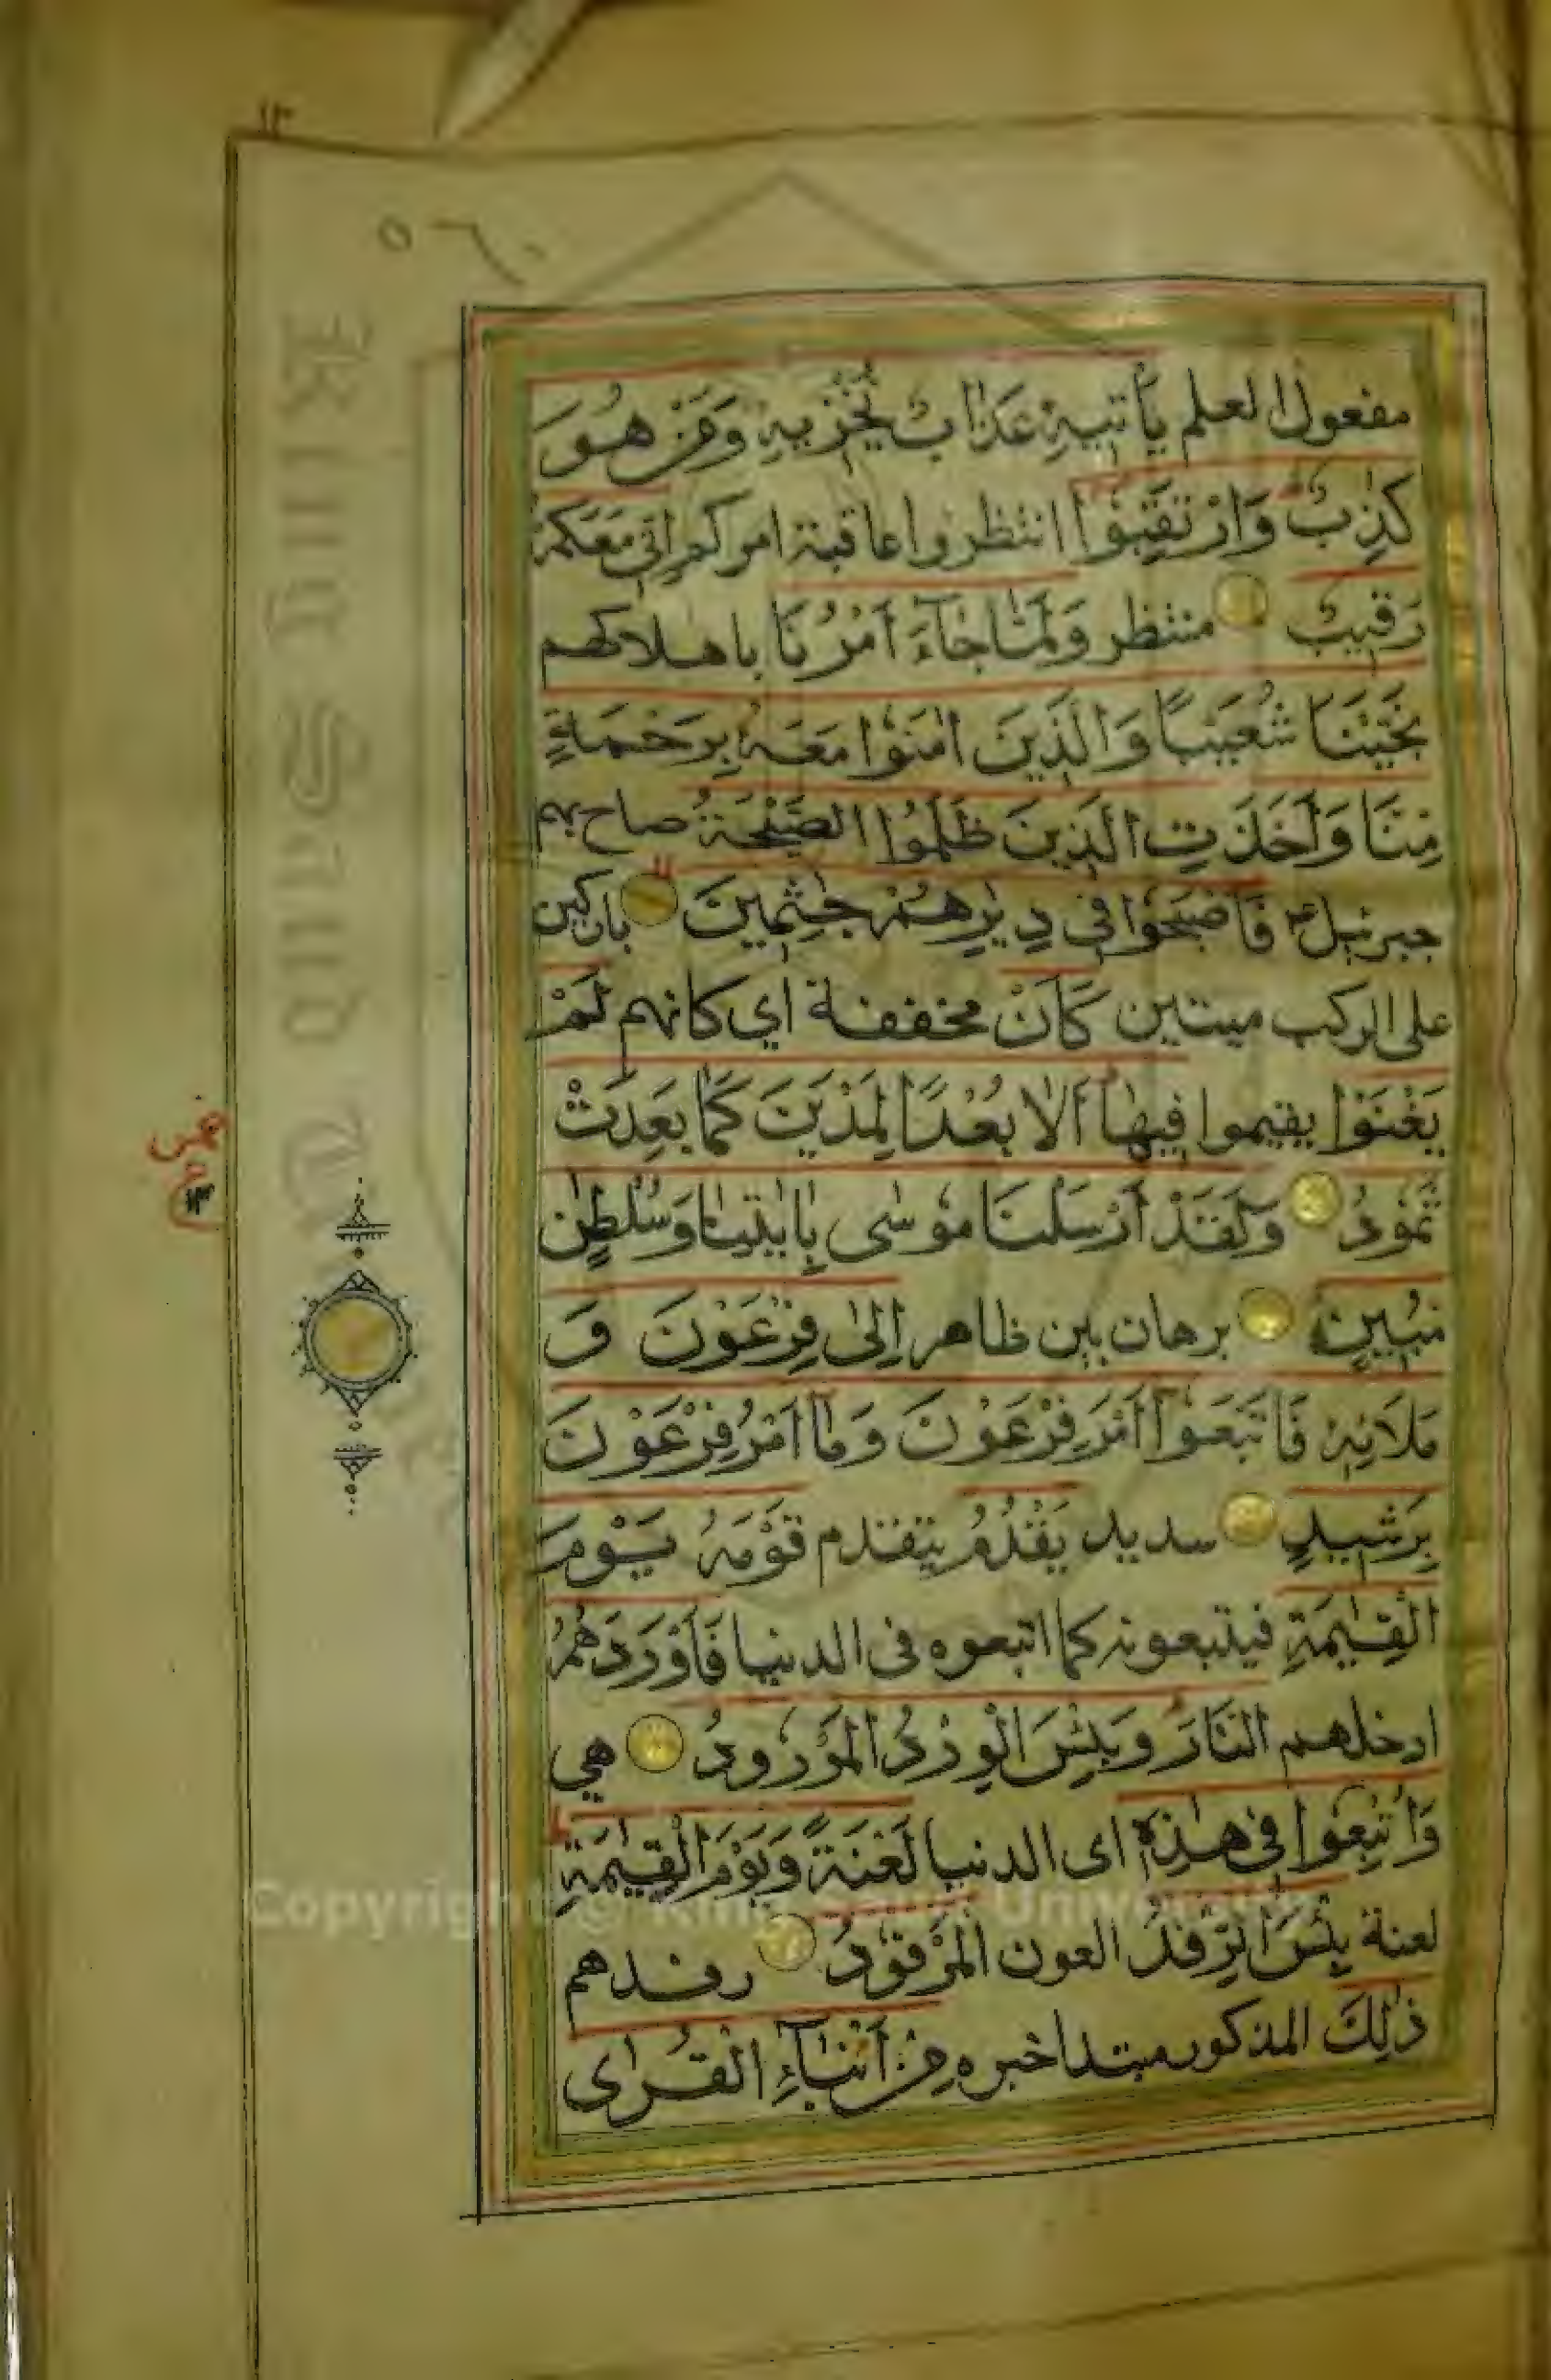 ١٣
مفعول العلم يَأْتِيهِ عَذَابٌ يُخْزِيهِ وَمَنْ هُوَ
كٰذِبٌ وَارْتَقِبُوْا انتظروا عاقبة امركم اِنِّي مَعَكُمْ
رَقِيبٌ منتظر وَلَمَّا جَآءَ اَمْرُنَا باهلاكهم
نَجَّيْنَا شُعَيْبًا وَالَّذِينَ اٰمَنُوْا مَعَهُ بِرَحْمَةٍ
مِنَّا وَاَخَذَتِ الَّذِينَ ظَلَمُوا الصَّيْحَةُ صاح بهم
جبرئيل فَاَصْبَحُوْا فِي دِيٰرِهِمْ جٰثِمِينَ باركين
على الركب ميتين كَاَنْ مخففة اي كانهم لَمْ
يَغْنَوْا يقيموا فِيهَا اَلَا بُعْدًا لِمَدْيَنَ كَمَا بَعِدَتْ
ثَمُودُ وَلَقَدْ اَرْسَلْنَا مُوْسٰى بِاٰيٰتِنَا وَسُلْطٰنٍ
مُبِينٍ برهان بين ظاهر اِلٰى فِرْعَوْنَ وَ
مَلَائِهٖ فَاتَّبَعُوْٓا اَمْرَ فِرْعَوْنَ وَمَآ اَمْرُ فِرْعَوْنَ
بِرَشِيدٍ سديد يَقْدُمُ يتقدم قَوْمَهُ يَوْمَ
الْقِيٰمَةِ فيتبعونه كما اتبعوه فى الدنيا فَاَوْرَدَهُمُ
ادخلهم النَّارَ وَبِئْسَ الْوِرْدُ الْمَوْرُودُ هي
وَاُتْبِعُوْا فِي هٰذِهٖ اى الدنيا لَعْنَةً وَيَوْمَ الْقِيٰمَةِ
لعنة بِئْسَ الرِّفْدُ العون الْمَرْفُوْدُ رفدهم
ذٰلِكَ المذكور مبتدا خبره مِنْ اَنْبَآءِ الْقُرٰى
King Saud
Copyright © King Saud University